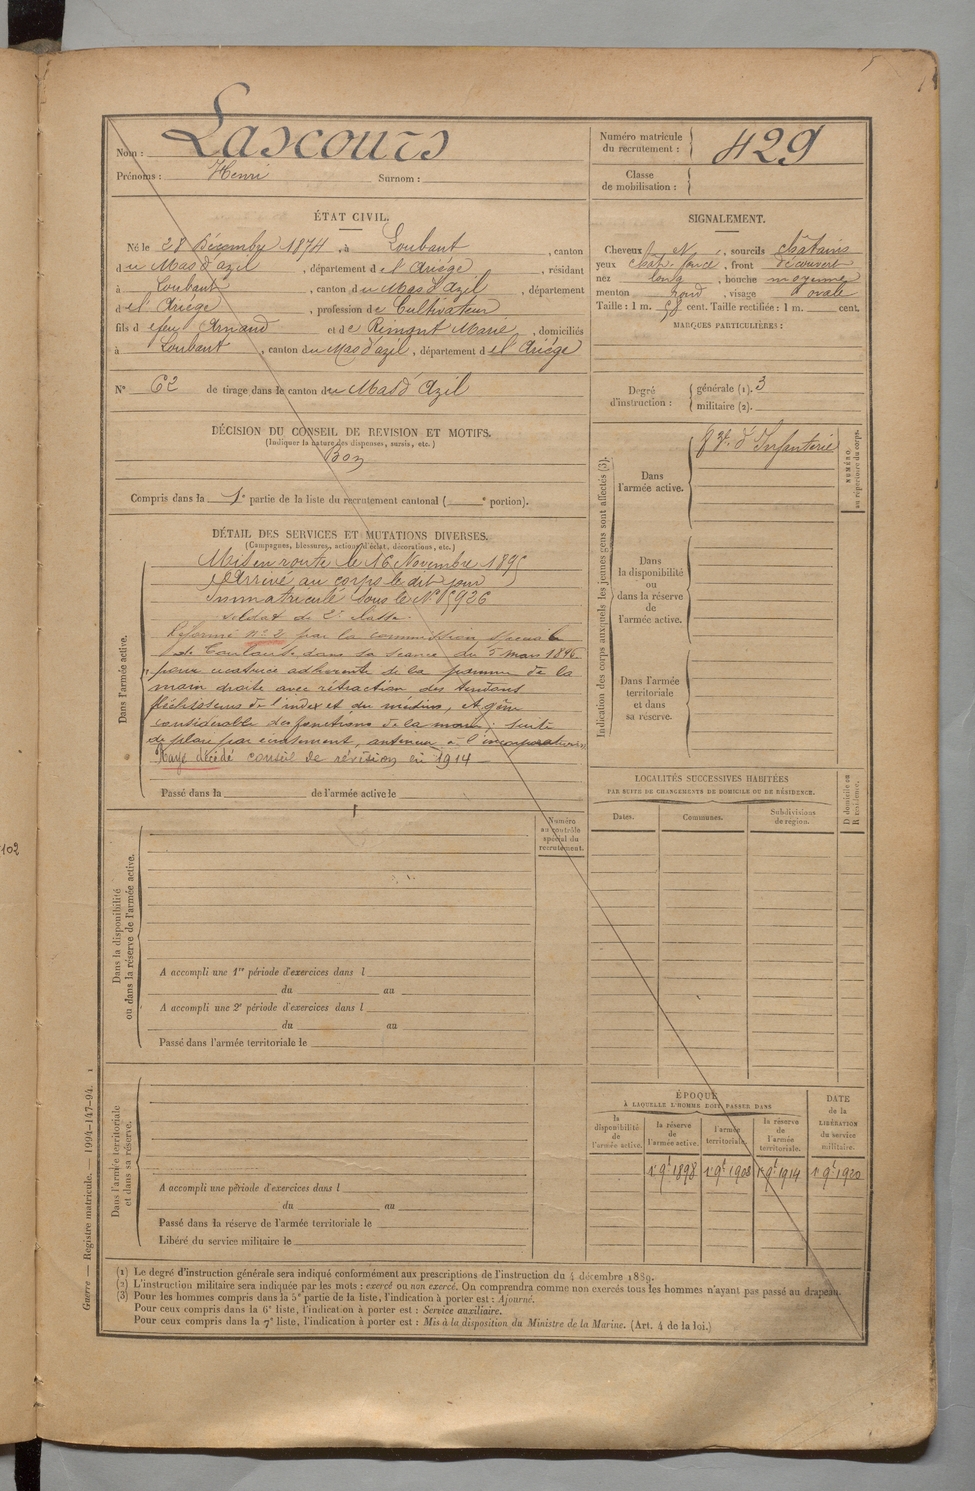 Nom : Lascours
Prénoms : Henri Surnom :
Numéro matricule du recrutement : 429
Classe de mobilisation :
ÉTAT CIVIL.
Né le 28 Décembre 1874, à Loubaut, canton
du Mas d'azil, département de l'Ariége, résidant
à Loubaut, canton du Mas d'Azil, département
de l'Ariége, profession de Cultivateur
fils de feu Arnaud et de Rimont Marie, domiciliés
à Loubaut, canton du Mas d'azil, département de l'Ariége
N° 62 de tirage dans le canton du Mas d'Azil
DÉCISION DU CONSEIL DE REVISION ET MOTIFS.
(Indiquer la nature des dispenses, sursis, etc.)
Bon
Compris dans la 1e partie de la liste du recrutement cantonal ( e portion).
DÉTAIL DES SERVICES ET MUTATIONS DIVERSES.
(Campagnes, blessures, actions d'éclat, décorations, etc.)
Dans l'armée active.
Mis en route le 16 Novembre 1895
Arrivé au corps le dit jour
Immatriculé sous le N°
soldat de 2e classe
Réformé n° 2 par la commission spéciale
de Toulouse dans sa séance du 5 mars 1896
pour cicatrice adhérente de la paume de la
main droite avec rétraction des tendons
fléchisseurs de l'index et du médius, et gêne
considérable des fonctions de la main ; suite
de plaie par écrasement, antérieur à l'incorporation
Rayé décidé conseil de révision en 1914
Passé dans la de l'armée active le
Numéro au contrôle spécial du recrutement.
Dans la disponibilité ou dans la réserve de l'armée active.
A accompli une 1re période d'exercices dans l
du au
A accompli une 2e période d'exercices dans l
du au
Passé dans l'armée territoriale le
Dans l'armée territoriale et dans sa réserve.
A accompli une période d'exercices dans l
du au
Passé dans la réserve de l'armée territoriale le
Libéré du service militaire le
SIGNALEMENT.
Cheveux N, sourcils châtains
yeux chât. foncé, front découvert
nez long, bouche moyenne
menton rond, visage ovale
Taille : 1 m. 58 cent. Taille rectifiée : 1 m. cent.
MARQUES PARTICULIÈRES :
Degré d'instruction :
générale (1). 3
militaire (2).
Indication des corps auxquels les jeunes gens sont affectés (3).
NUMÉRO au répertoire du corps.
Dans l'armée active. d'Infanterie
Dans la disponibilité ou dans la réserve de l'armée active.
Dans l'armée territoriale et dans sa réserve.
LOCALITÉS SUCCESSIVES HABITÉES
PAR SUITE DE CHANGEMENTS DE DOMICILE OU DE RÉSIDENCE.
Dates. Communes. Subdivisions de région. D domicile ou R résidence.
ÉPOQUE
À LAQUELLE L'HOMME DOIT PASSER DANS
la disponibilité de l'armée active.
la réserve de l'armée active.
l'armée territoriale.
la réserve de l'armée territoriale.
DATE de la LIBÉRATION du service militaire.
1r 9e 1898 1r 9e 1908 1r 9e 1914 1r 9e 1920
(1) Le degré d'instruction générale sera indiqué conformément aux prescriptions de l'instruction du 4 décembre 1889.
(2) L'instruction militaire sera indiquée par les mots : exercé ou non exercé. On comprendra comme non exercés tous les hommes n'ayant pas passé au drapeau.
(3) Pour les hommes compris dans la 5e partie de la liste, l'indication à porter est : Ajourné.
Pour ceux compris dans la 6e liste, l'indication à porter est : Service auxiliaire.
Pour ceux compris dans la 7e liste, l'indication à porter est : Mis à la disposition du Ministre de la Marine. (Art. 4 de la loi.)
Guerre — Registre matricule. — 1994-147-94. 1
102